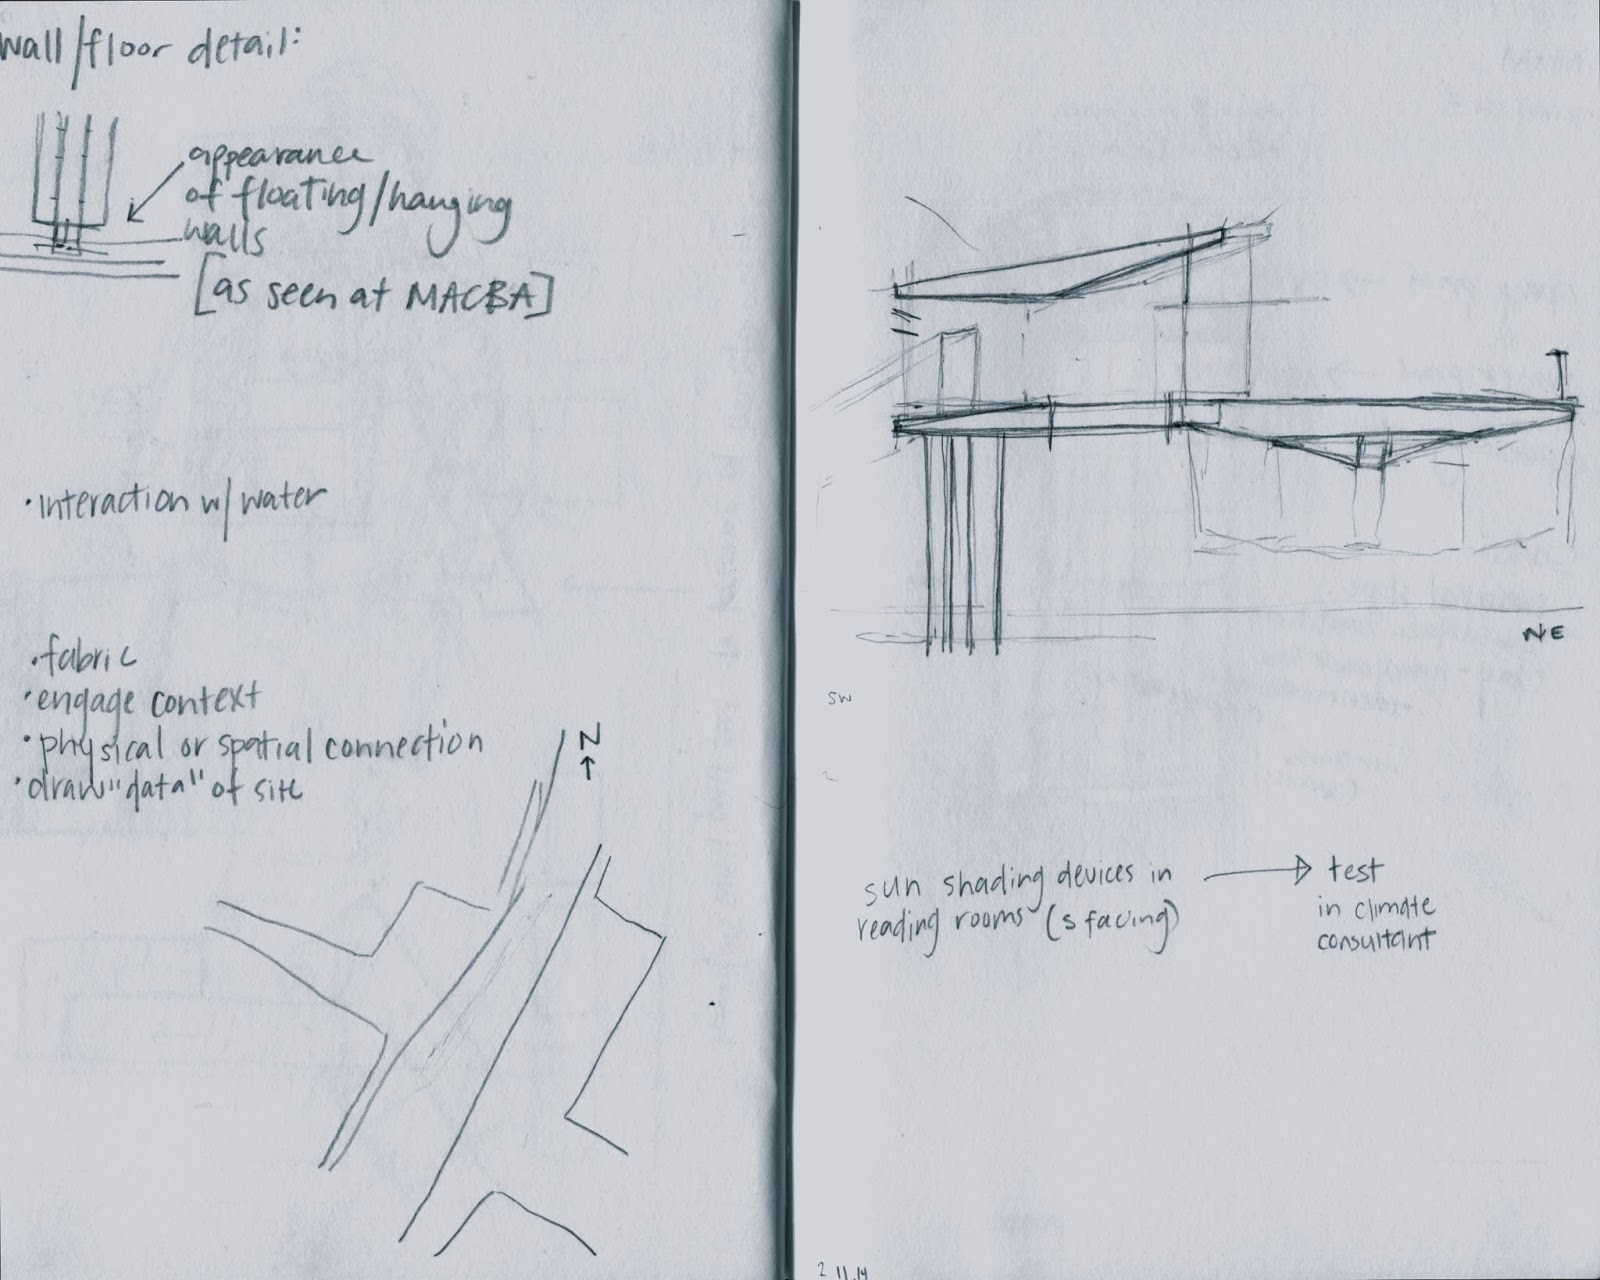 wall/floor detail:
appearance
of floating/hanging
walls
[as seen at MACBA]
• interaction w/ water
• fabric
• engage context
• physical or spatial connection
• draw "data" of site
N
NE
SW
sun shading devices in
reading rooms (s facing)
test
in climate
consultant
2.11.14